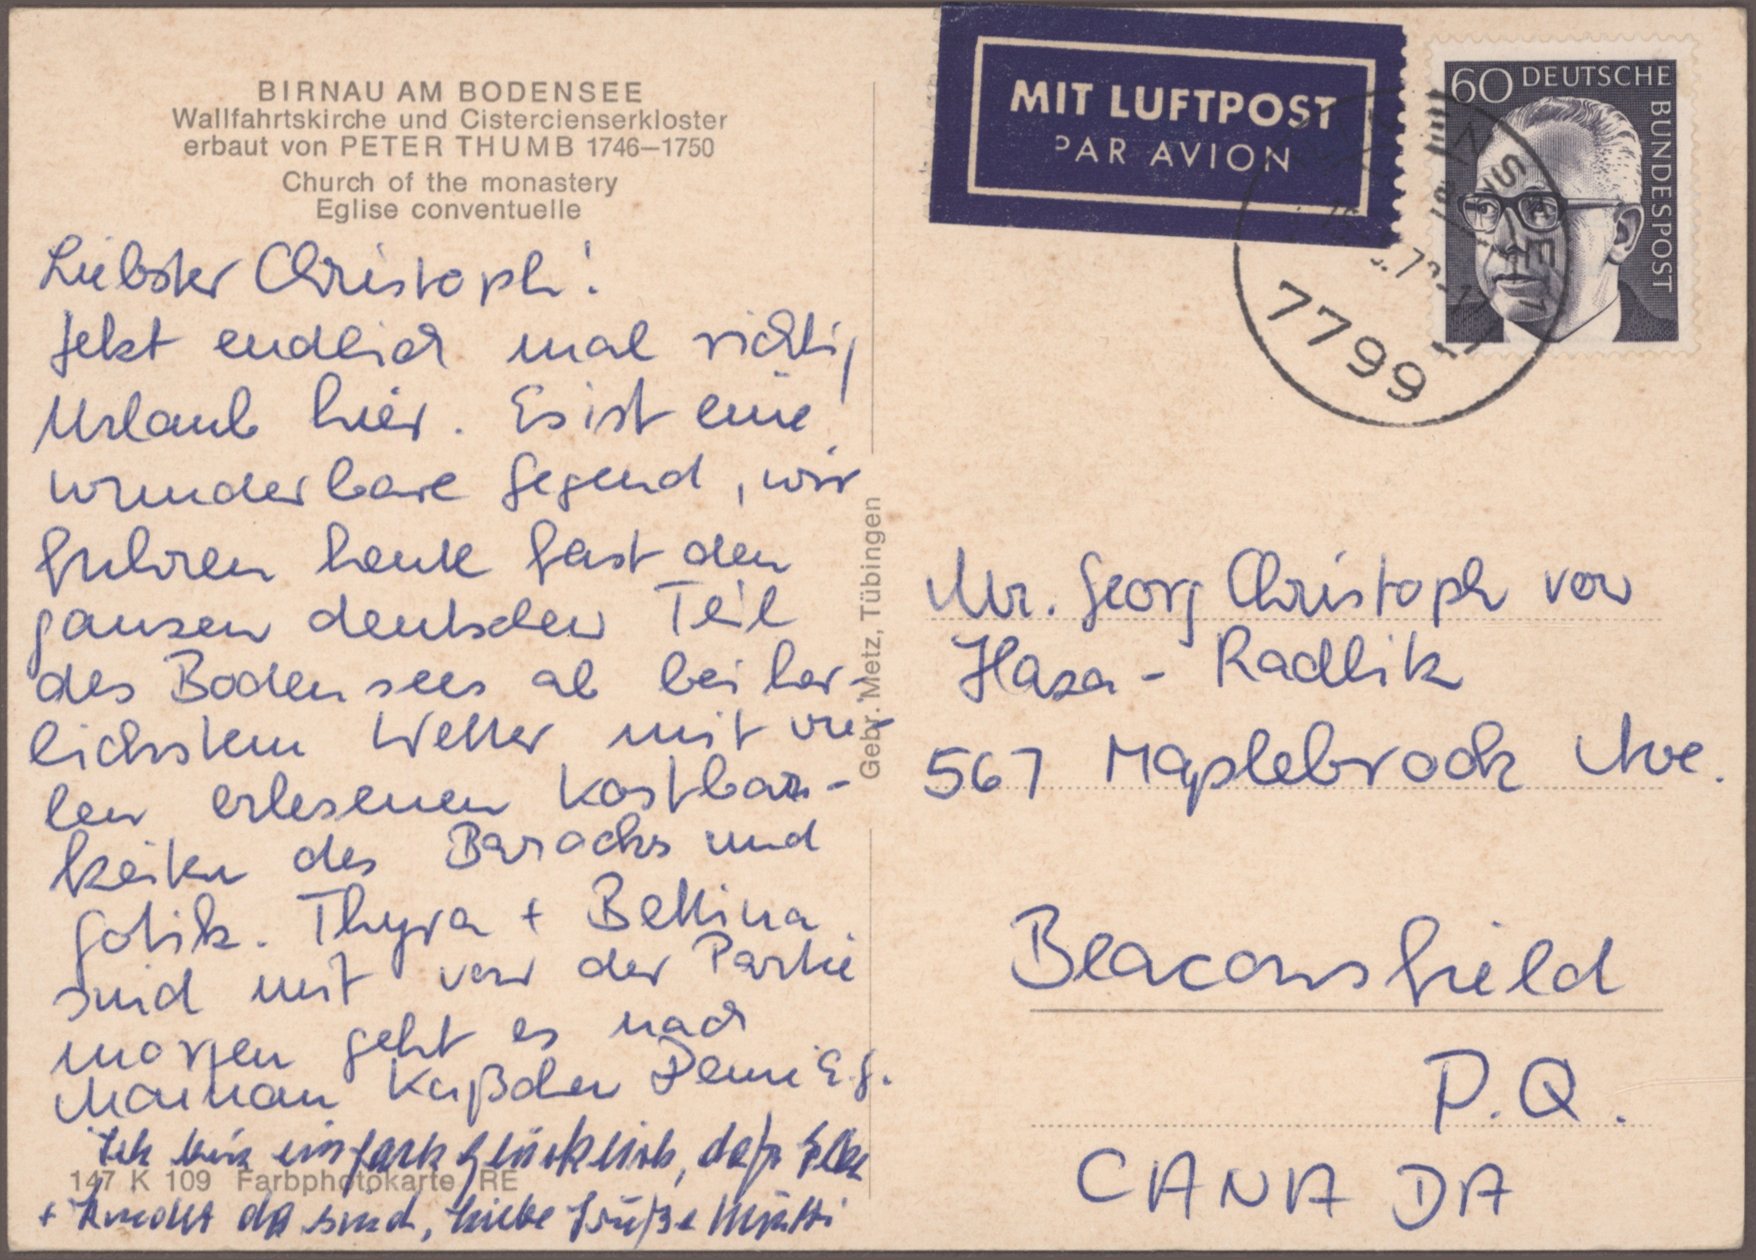 BIRNAU AM BODENSEE
Wallfahrtskirche und Cistercienserkloster
erbaut von PETER THUMB 1746–1750
Church of the monastery
Eglise conventuelle
Liebster Christoph!
Jetzt endlich mal richtig
Urlaub hier. Es ist eine
wunderbare Gegend, wir
fuhren heute fast den
ganzen deutschen Teil
des Bodensees ab bei herr-
lichstem Wetter mit vie-
len erlesenen Kostbar-
keiten des Barocks und
Gotik. Thyra + Bettina
sind mit von der Partie
morgen geht es nach
Mainau Kußchen
Ich bin einfach glücklich, daß Elke
+ da sind, Liebe Grüße Mutti
147 K 109 Farbphotokarte RE
Gebr. Metz, Tübingen
MIT LUFTPOST
PAR AVION
60 DEUTSCHE
BUNDESPOST
7799
Mr. Georg Christoph von
Haza-Radlik
567 Maplebrook Ave.
Beaconsfield
P.Q.
CANADA